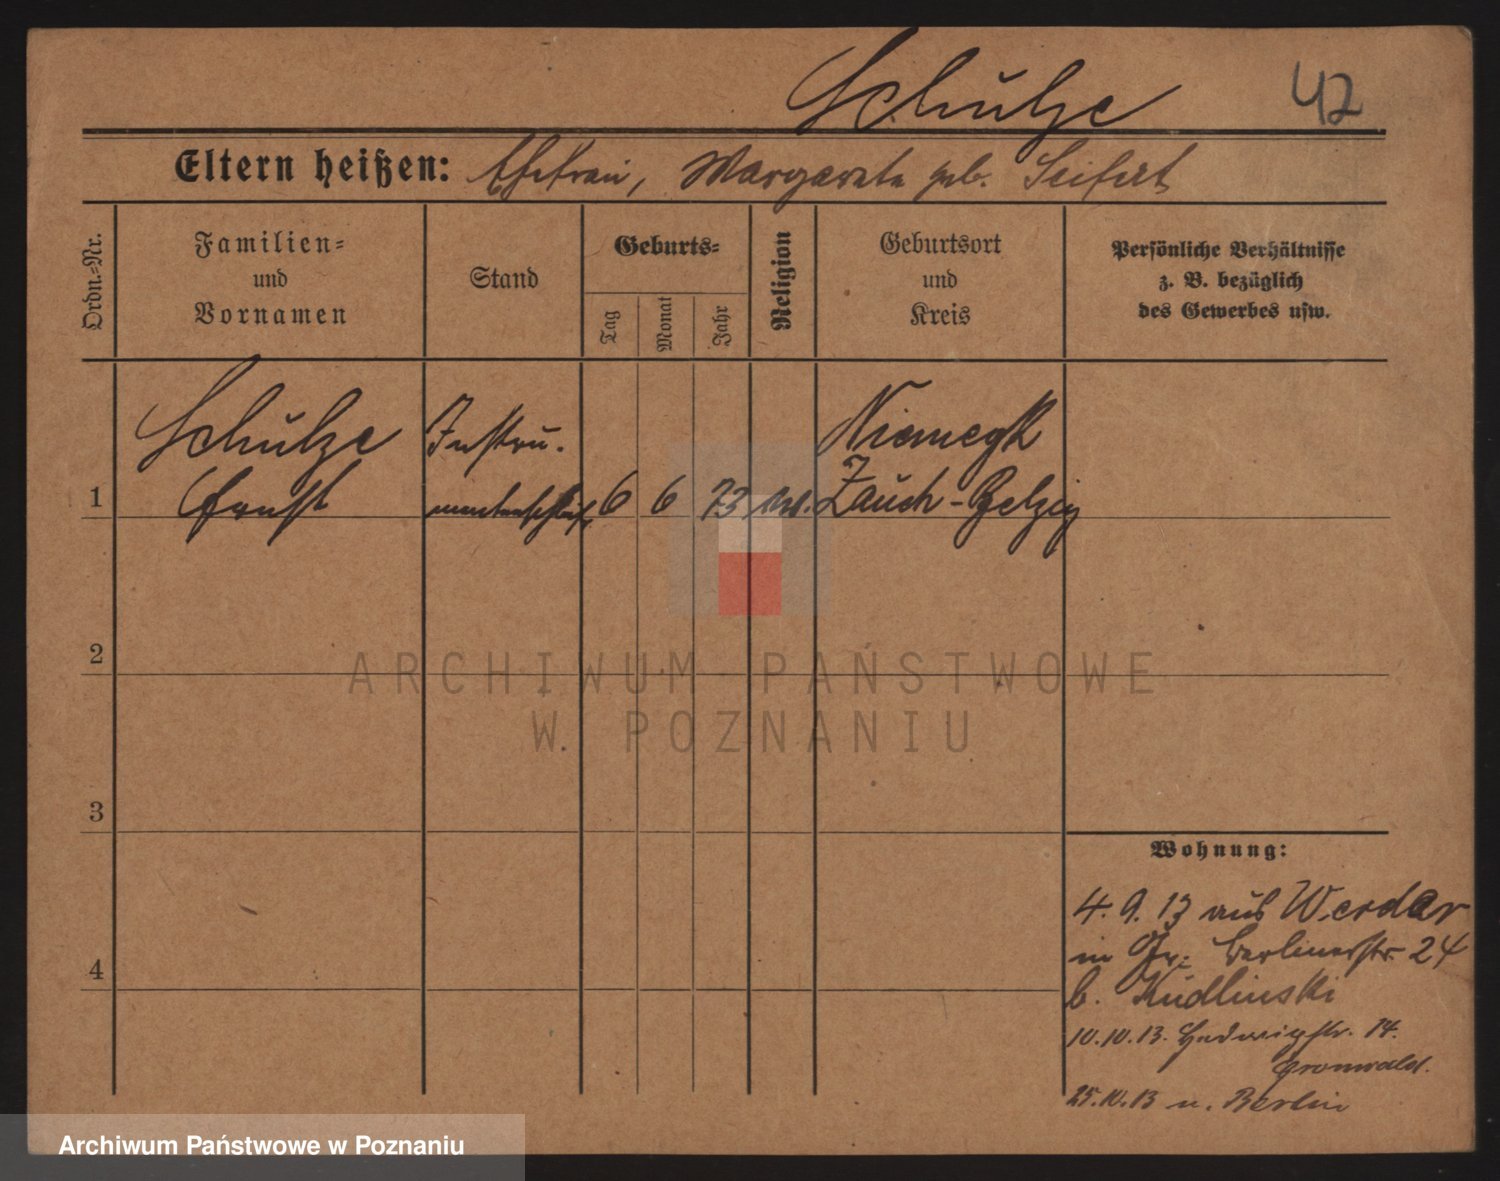 Schulze
42
Eltern heißen: Ehefrau, Margarete geb. Seifert
Ordn.=Nr.
Familien=
und
Vornamen
Stand
Geburts=
Tag
Monat
Jahr
Religion
Geburtsort
und
Kreis
Persönliche Verhältnisse
z. B. bezüglich
des Gewerbes usw.
1
Schulze
Ernst
Instru.
mentenschleif.
6
6
73
Niemegk
Zauch-Belzig
2
3
4
ARCHIWUM PAŃSTWOWE
W POZNANIU
Wohnung:
4. 9. 13 aus Werder
in Berlinerstr. 24
b. Kudlinski
10.10.13. Hedwigstr. 14.
Gronwald.
25.10.13 n. Berlin
Archiwum Państwowe w Poznaniu